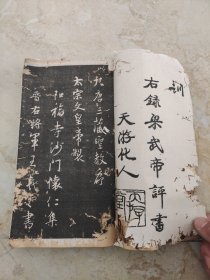 訓
右錄梁武帝評書
天游化人
大唐三藏聖教序
太宗文皇帝製
弘福寺沙門懷仁集
晉右將軍王羲之書